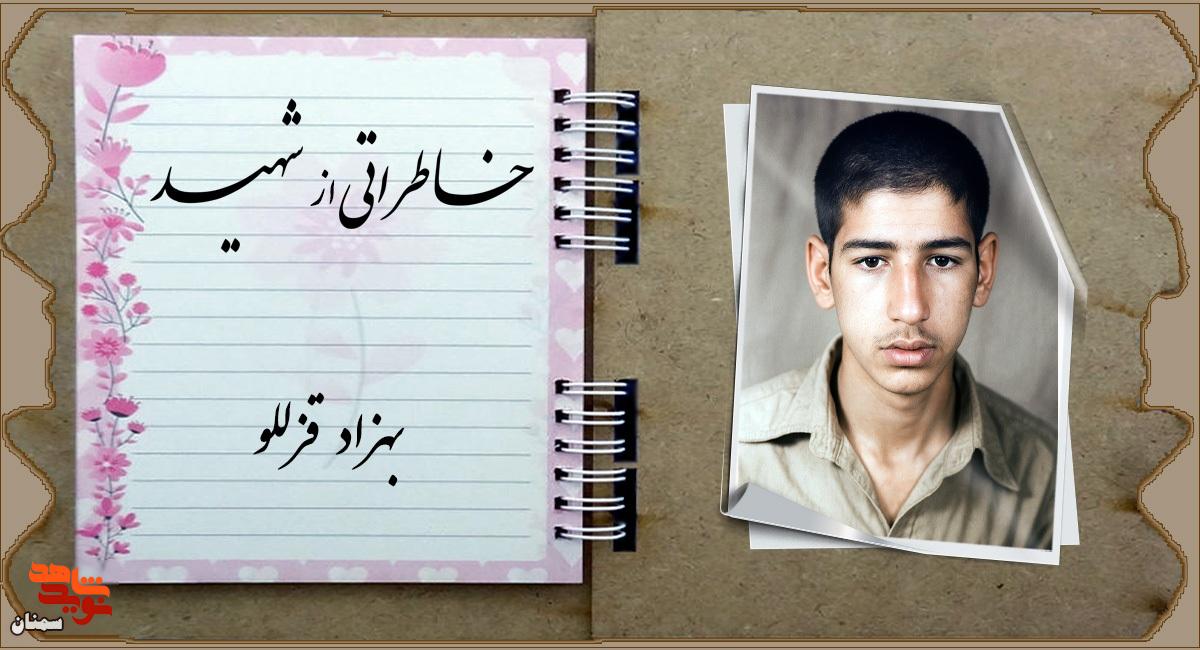 خاطراتی از شهید
بهزاد قزللو
نوید شاهد
سمنان